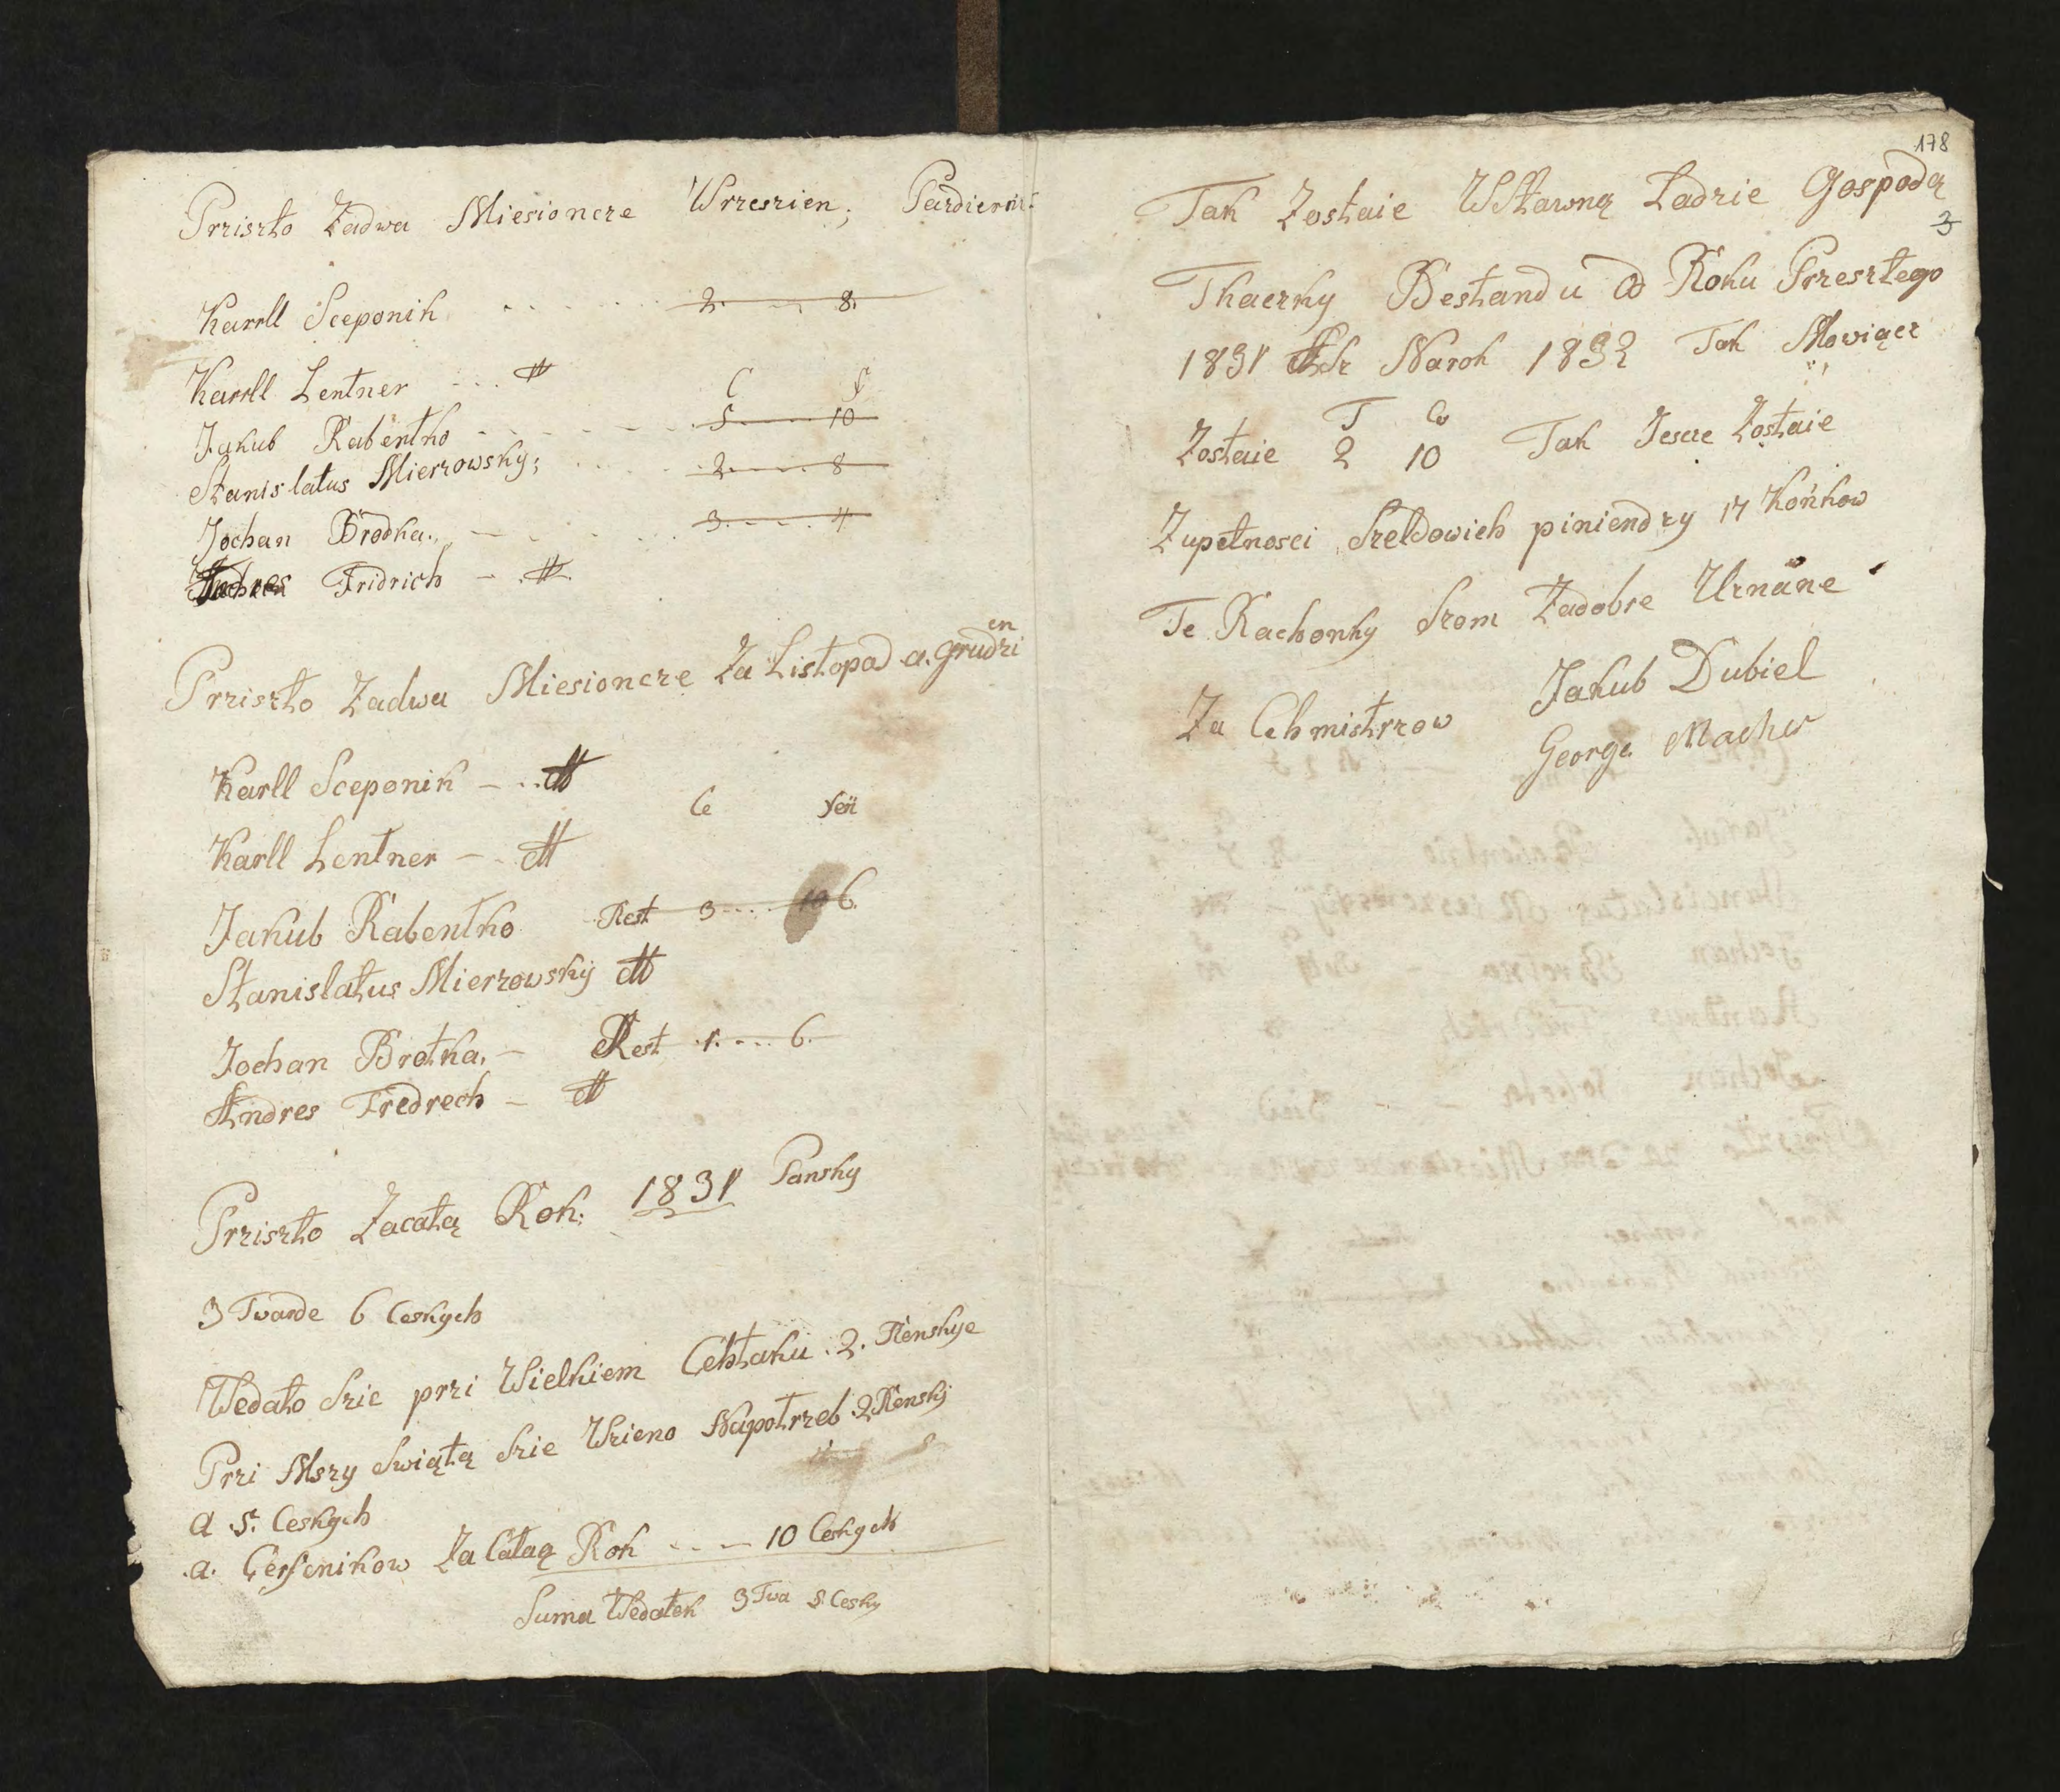 Prziszło Zadwa Miesioncze Wrzeszien; Pazdiernik:
Karrll Sceponik 2. 8.
Karrll Lentner
C f
Jakub Rabentko 5 10
Stanislatus Mierzowsky; 2 8
Jochan Brodka. 3 4
Andres Fridrich
Prziszło Zadwa Miesioncze Za Listopad a. grudzien
Karll Sceponik
Ce fen
Karll Lentner
Jakub Rabentko Rest 3 10 6.
Stanislatus Mierzowsky
Jochan Brotka. Rest 1 6.
Andres Fredrech
Prziszło Zacałą Rok: 1831 Pansky
3 Twarde 6 Ceskych
Wedało szie przi Wielkiem Cehtaku .2. Renskye
Przi Mszy Swiątą szie Wzieno Napotrzeb 2 Rensky
a 5. Ceskych
.a. Cerfenikow Za Całaą Rok 10 Ceskych
Suma Wedatek 3 Twa 5 Cesky
178
Tak Zostaie WStawną Ladzie Gospodą
3
Tkaczky Bestandu od Roku Przeszłego
1831 Narok 1832 Tak Mowiącz
T Ce
Zostaie 2 10 Tak Jescze Zostaie
Zupełnosci Szeldowich piniendzy 17 Końkow
Te Rachonky Szom Zadobre Uznane
Za Cehmistrzow Jakub Dubiel
George Machw